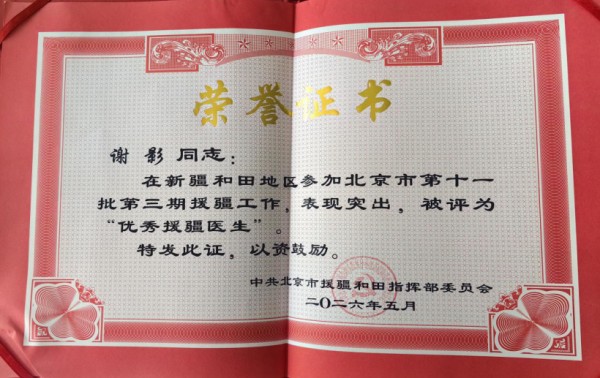 荣誉证书
谢影 同志：
在新疆和田地区参加北京市第十一
批第三期援疆工作，表现突出，被评为
“优秀援疆医生”。
特发此证，以资鼓励。
中共北京市援疆和田指挥部委员会
二〇二六年五月